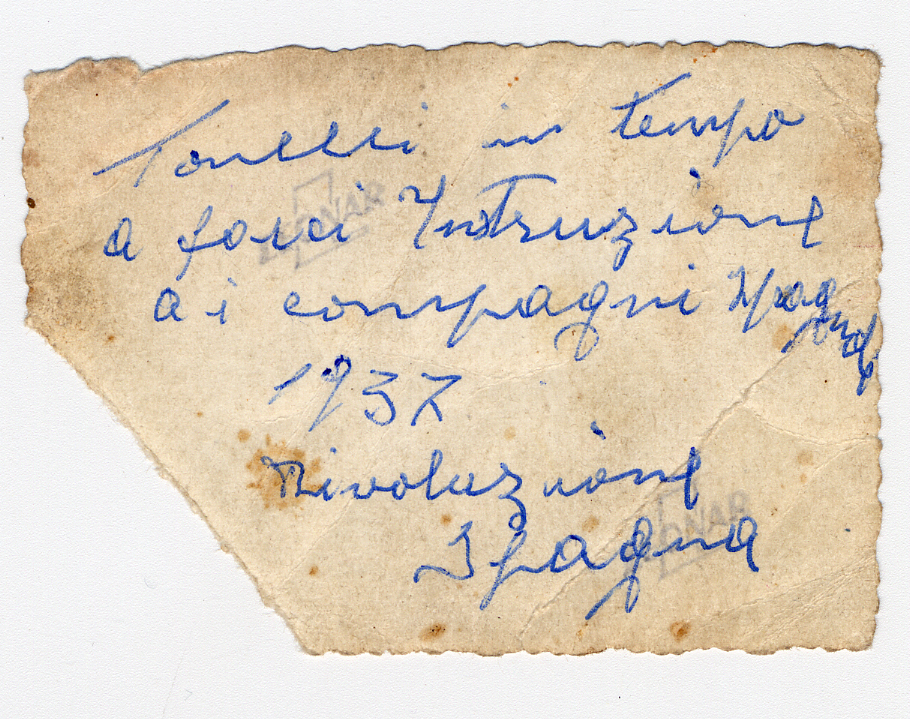 Tonelli in tempo
a farci Instruzione
ai compagni Spagnoli
1937
Rivoluzione
Spagna